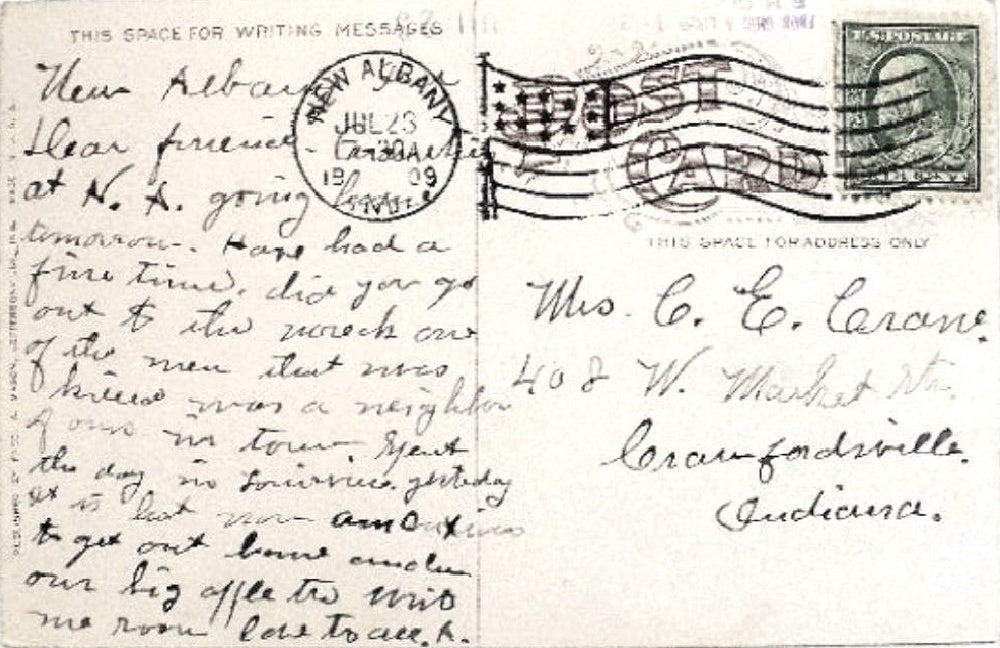 THIS SPACE FOR WRITING MESSAGES
New Albany
Dear friend-
at N. A. going home
tomorrow. Have had a
fine time. did you go
out to the wreck one
of the men that was
killed was a neighbor
of ours in town. Spent
the day in Louisville yesterday
it is hot now am anxious
to get out home under
our big apple tre write
me soon love to all. A.
NEW ALBANY
JUL 23
30A
19 09
IND.
POST CARD
U.S. POSTAGE
THIS SPACE FOR ADDRESS ONLY
Mrs. C. E. Crane.
408 W. Market St.
Crawfordsville.
Indiana.